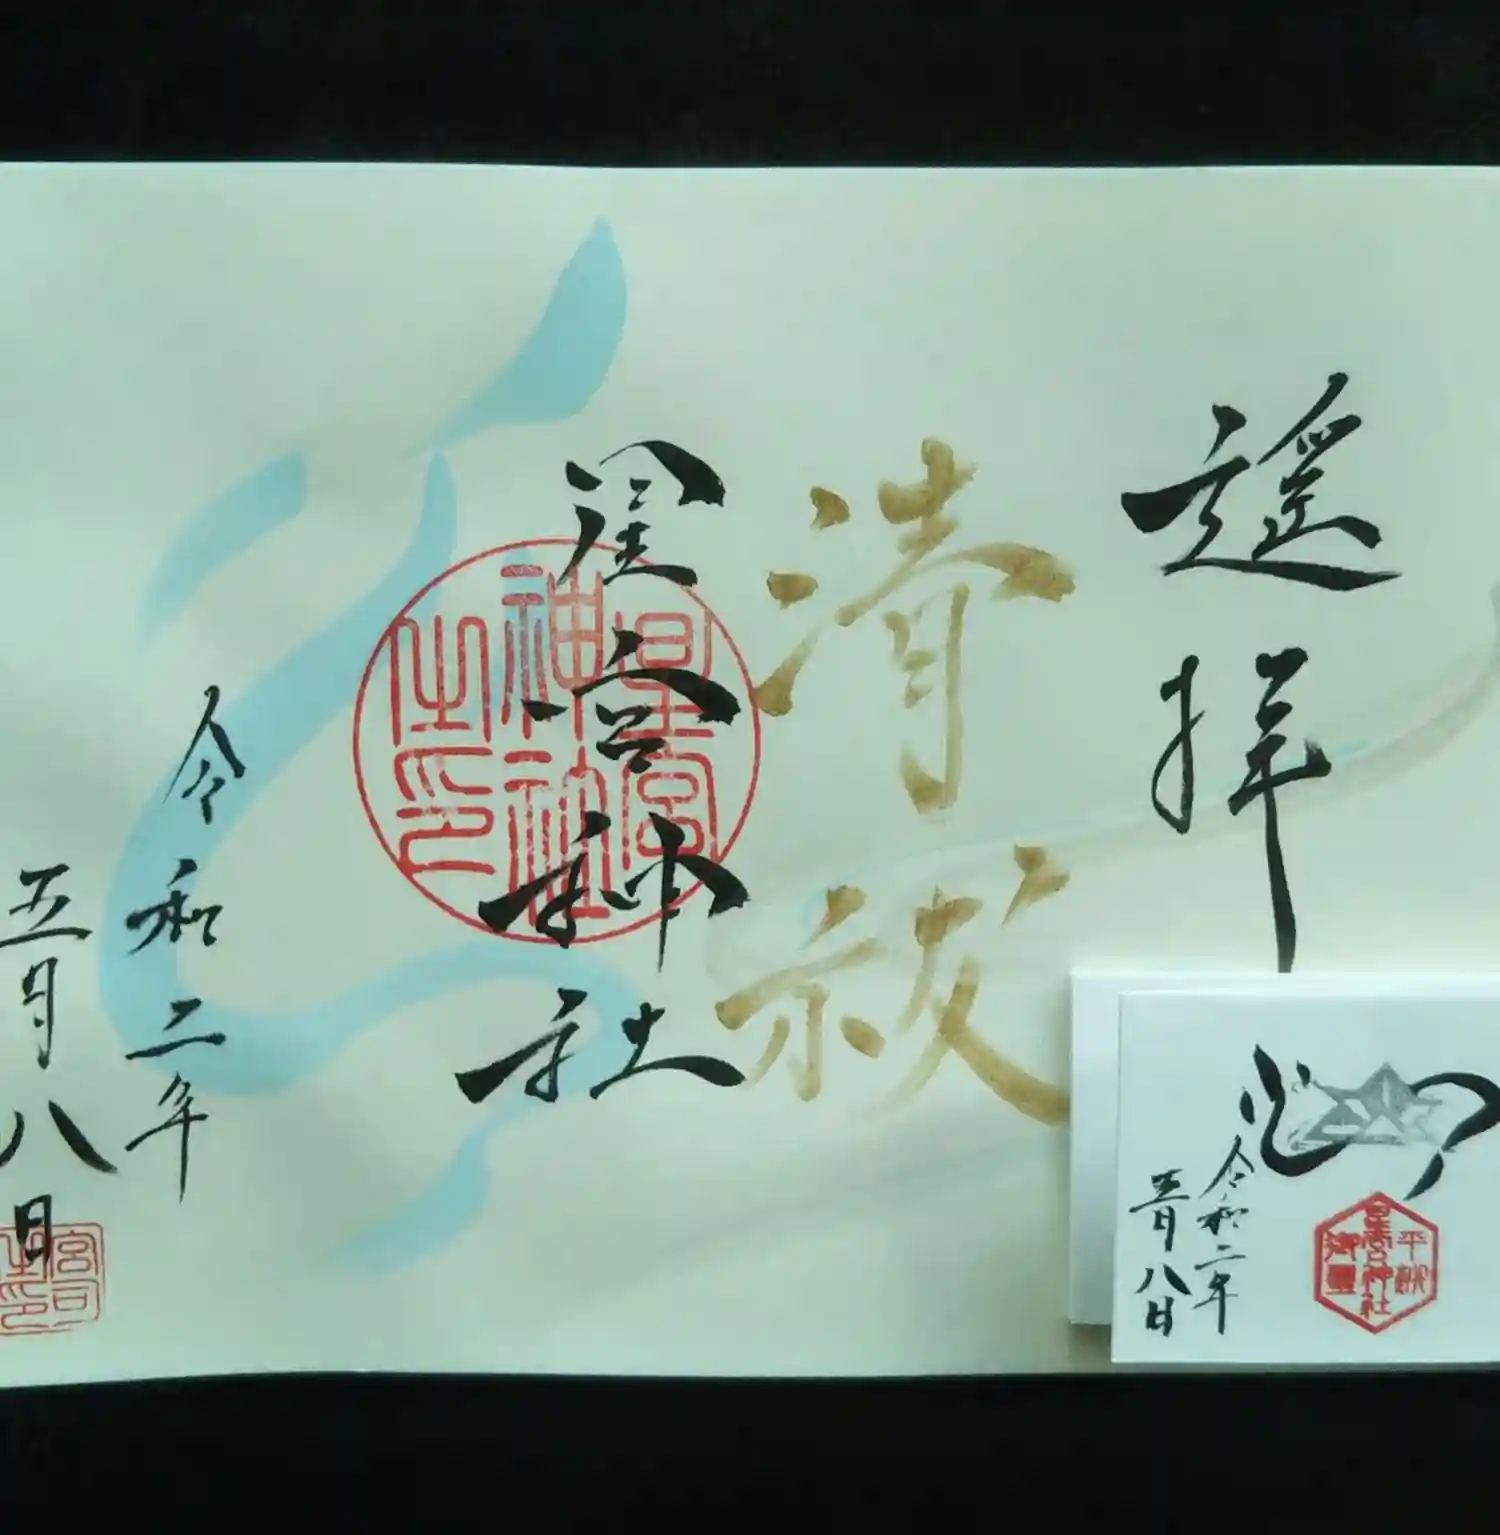 遥拝
清祓
星宮神社
星宮
神社
之印
令和二年
五月八日
宮司
之印
令和二年
五月八日
星宮神社